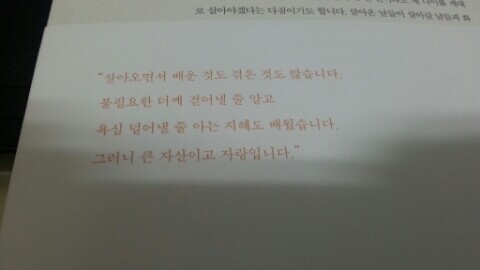 로 살아야겠다는 다짐이기도 합니다. 살아온 날들이 살아갈 날들과 화
“살아오면서 배운 것도 겪은 것도 많습니다.
불필요한 더께 걷어낼 줄 알고
욕심 덜어낼 줄 아는 지혜도 배웠습니다.
그러니 큰 자산이고 자랑입니다.”